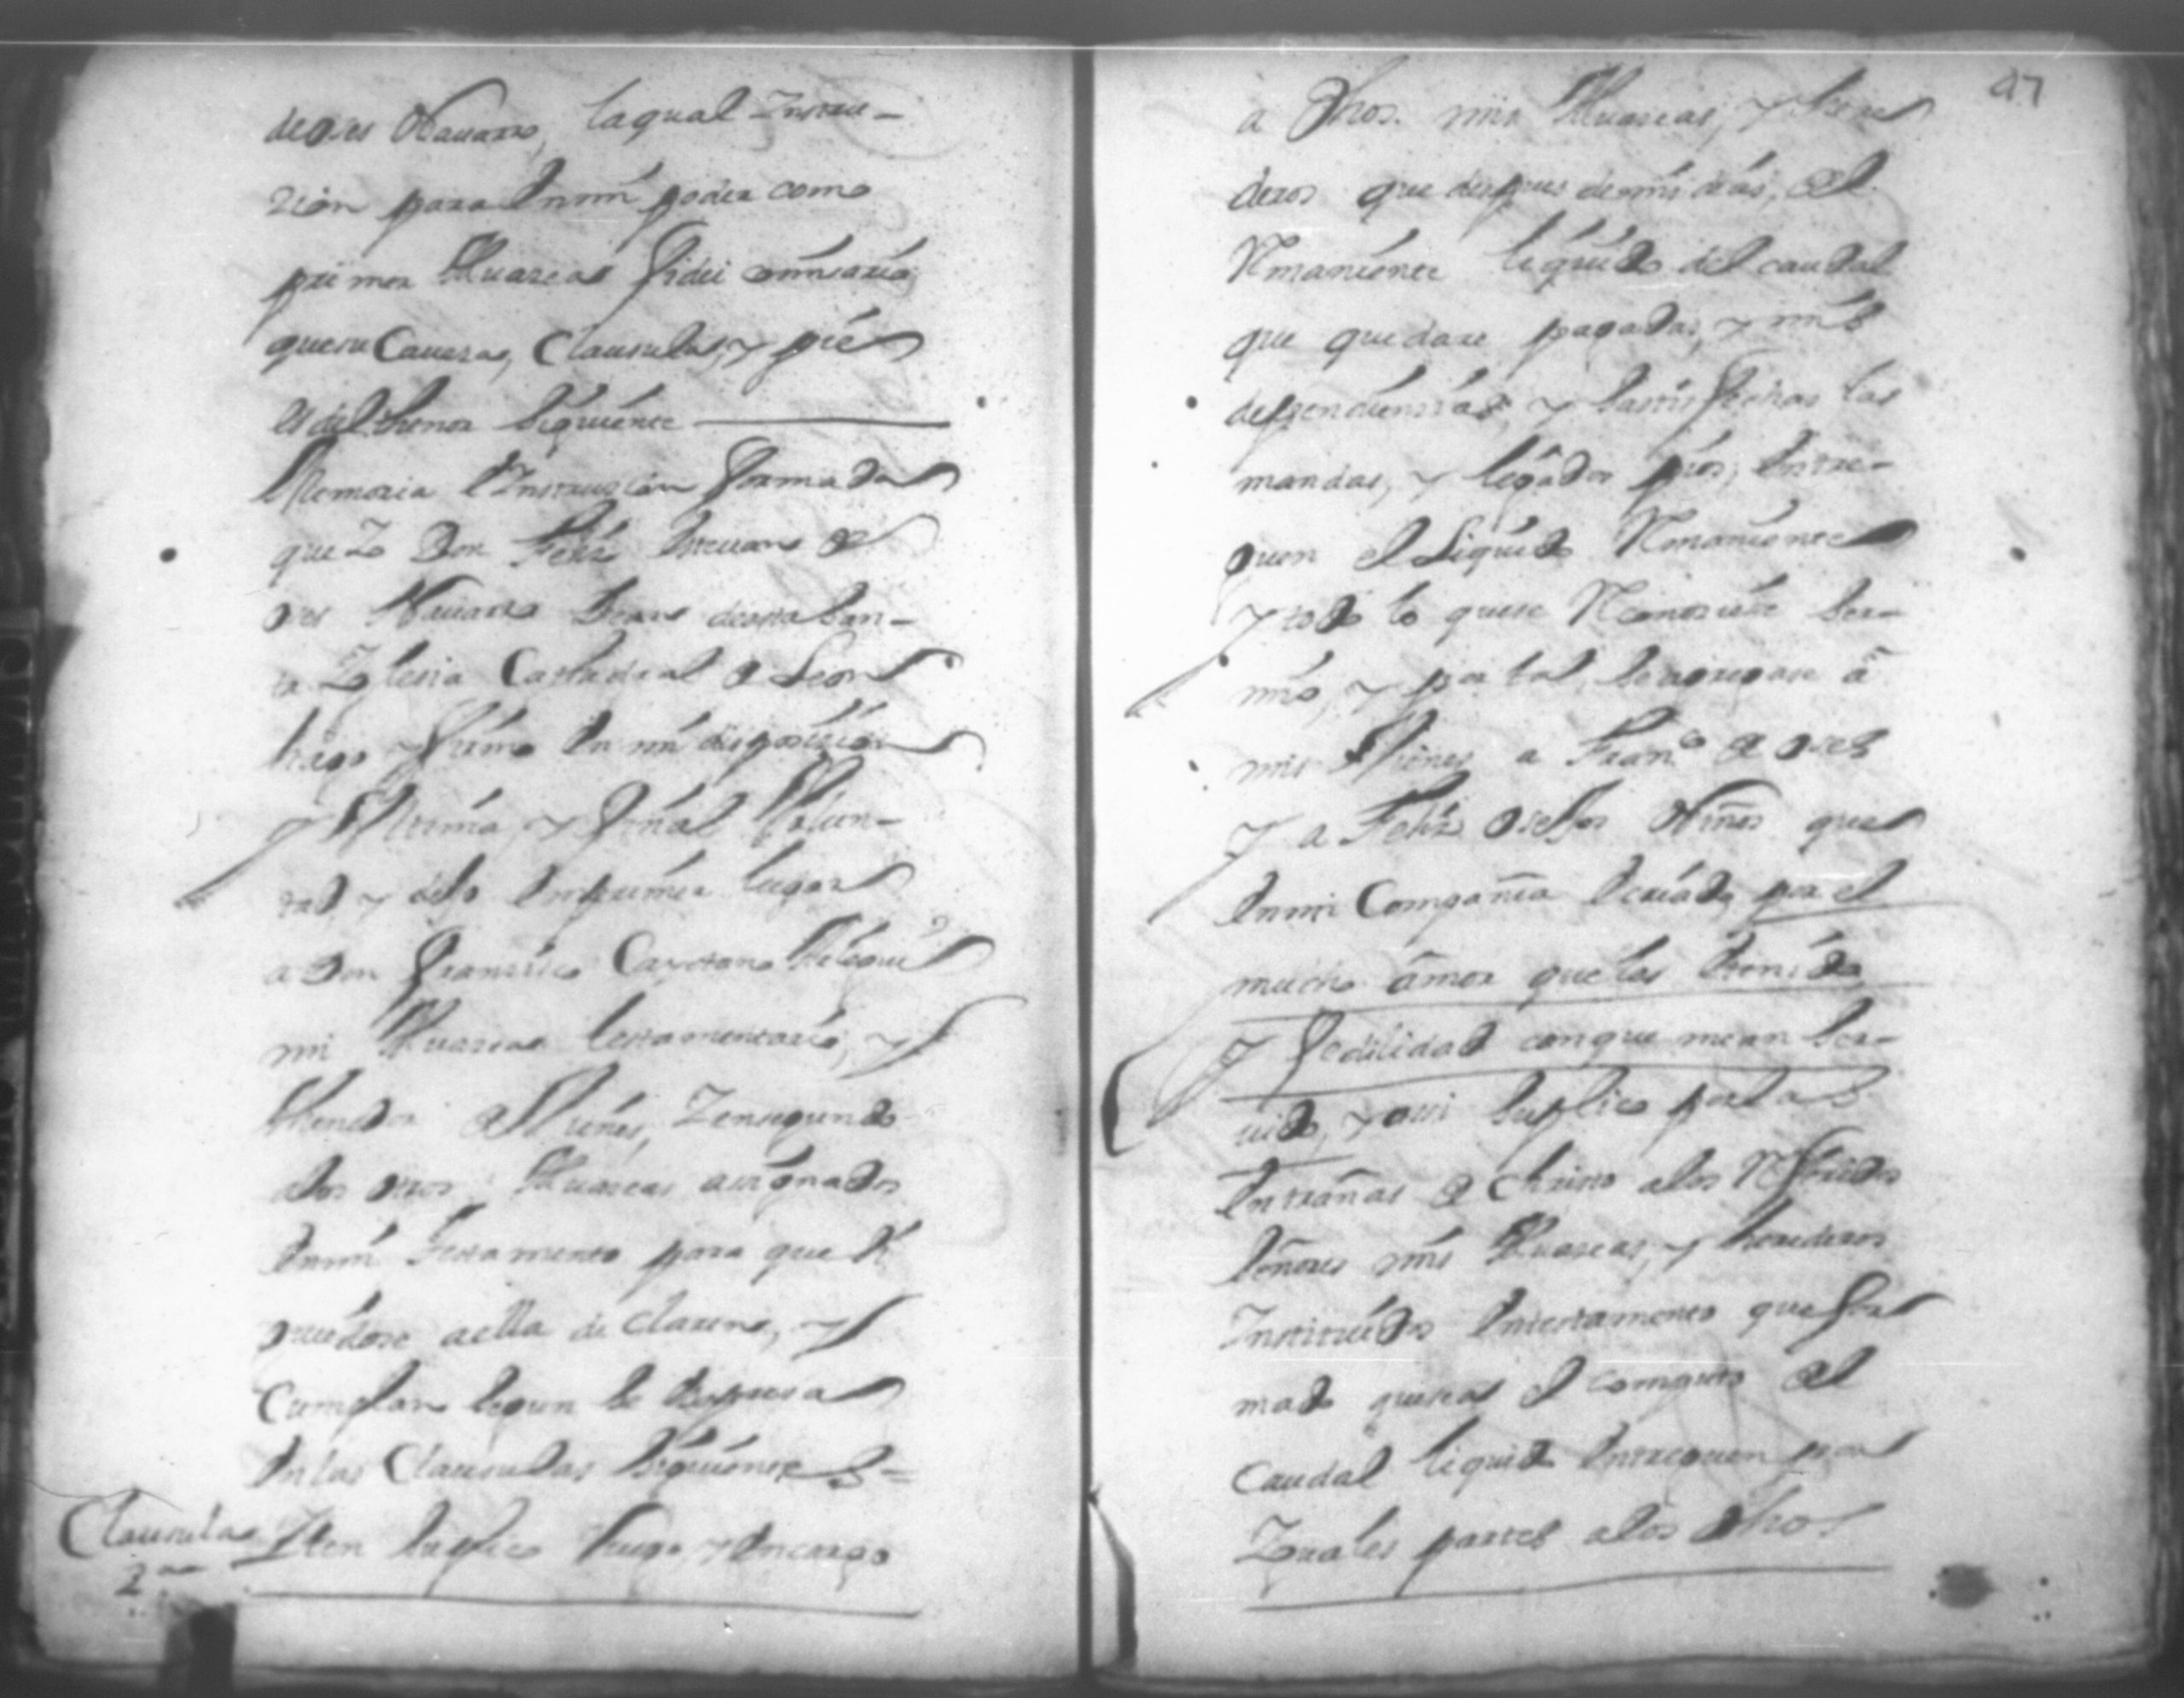 deoses Navarro, la qual Instru-
zion para En mi poder como
primer Albaseas fidei comisario,
que su Caveza, Clausulas, y pie
es del thenor siguiente
Memoria E Instruzion formada
que Yo Don Felix Estevan de
oses Navarro Dean de esta San-
ta Yglesia Cathadral de Leon
hago y firmo En mi disposizion
y Ultima, y final Volun-
tad y dejo En primer lugar
a Don Franzisco Cayetano
mi Albasea testamentario, y
thenedor de Vienes, Y en segundo
a los otros Albaseas asignados
En mi Testamento para que
puedose a ella declaren, y
Cumplan segun se Espresa
En las Clausulas siguientes =
Clausula 2ª
Yten suplico Ruego y Encargo
97
a dhos. mis Albaseas, y here
deros que despues de mis dias, del
Remaniente liquido del caudal
que quedare pagadas, mis
dependiensias, y satisfechas las
mandas, y legados pios, Entre-
guen el Liquido Remaniente
y todo lo que se Reconosiere ser
mio, y por tal se agregare á
mis Vienes a Franco de oses
y a Felix oses los Niños que
En mi Compañia E criado, por el
mucho amor que les E tenido
y fedilidad con que me an ser-
vido, y asi suplico por las
Entrañas de Christo a los Referidos
Señores mis Albaseas, y herederos
Instituidos En testamento que for
mado que sea el computo del
Caudal liquido Entreguen por
Yguales partes a los dhos